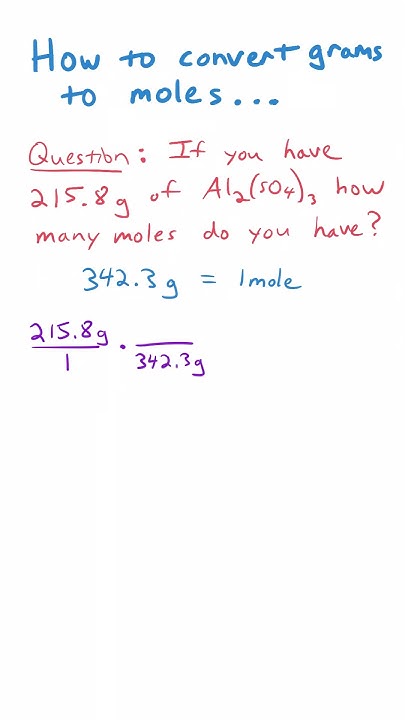 How to convert grams
to moles...
Question: If you have
215.8g of Al₂(SO₄)₃ how
many moles do you have?
342.3g = 1mole
215.8g
1
·
342.3g